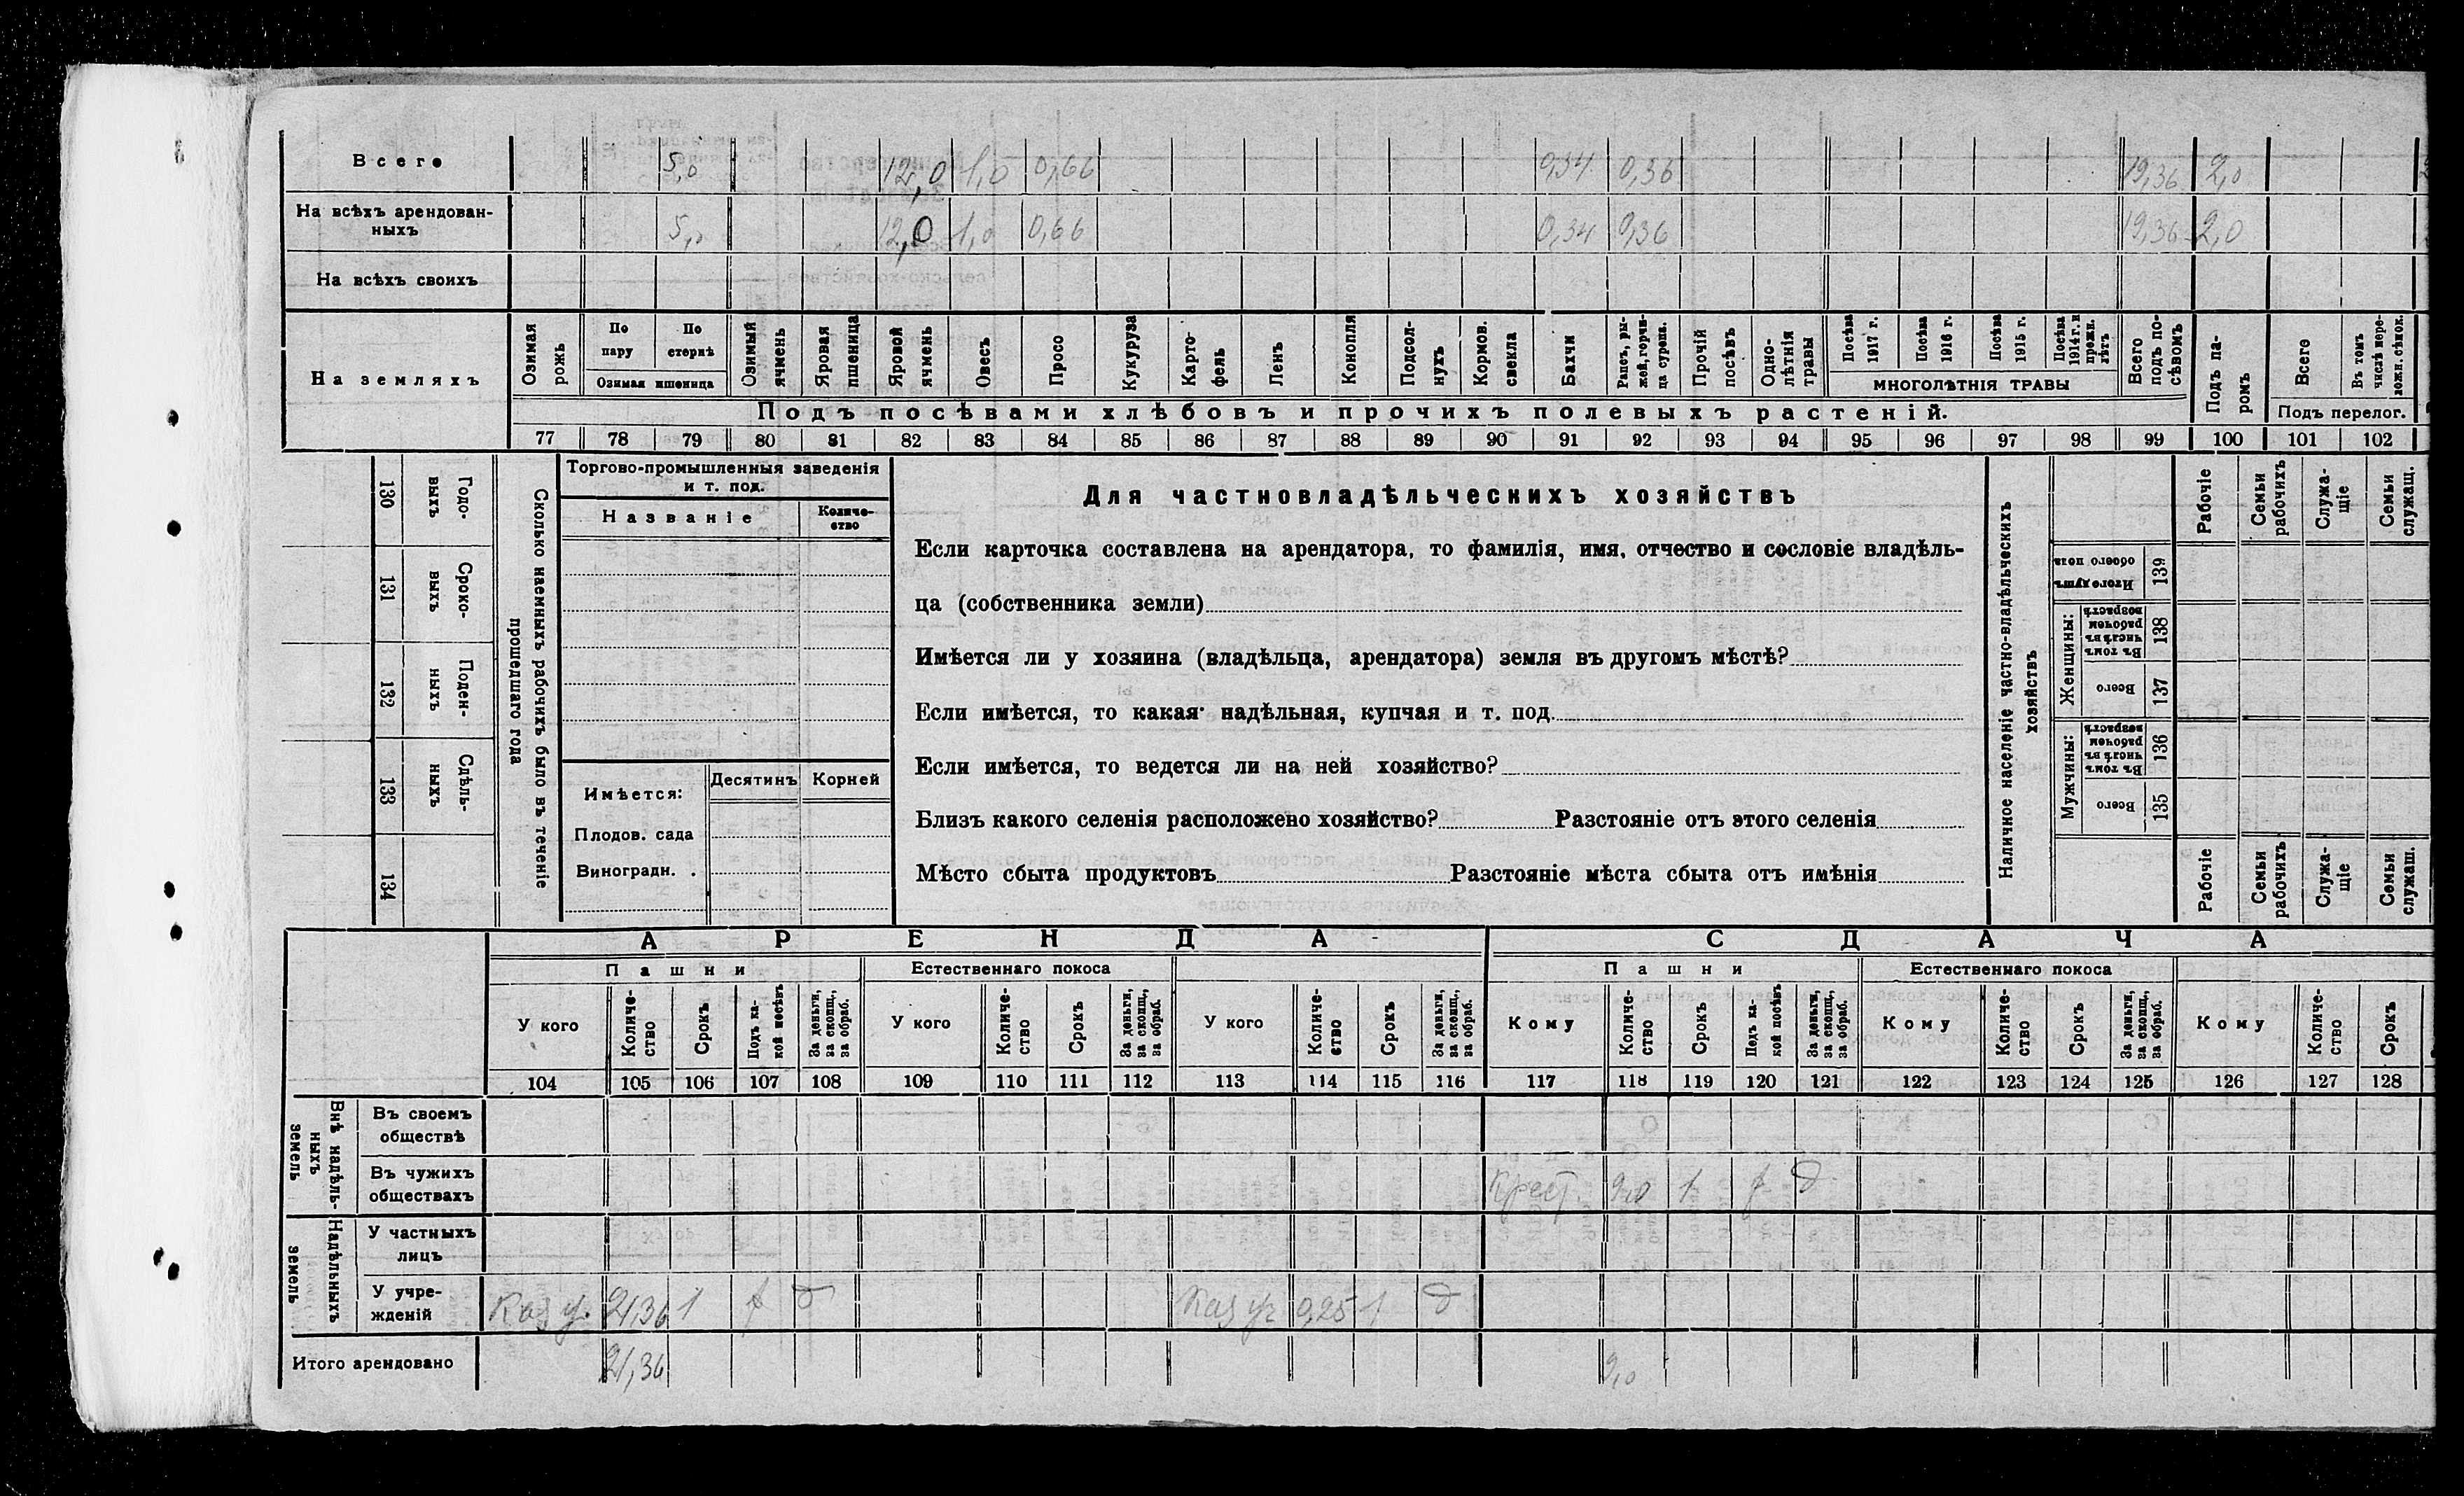 Всего 5,0 12,0 1,0 0,66 0,34 0,36 19,36 2,0
На всѣхъ арендован-
ныхъ 5,0 12,0 1,0 0,66 0,34 0,36 19,36 2,0
На всѣхъ своихъ
На земляхъ
Озимая рожь
По пару
По стернѣ
Озимая пшеница
Озимый ячмень
Яровая пшеница
Яровой ячмень
Овесъ
Просо
Кукуруза
Карто-
фель
Ленъ
Конопля
Подсол-
нухъ
Кормов.
свекла
Бахчи
Рапсъ, ры-
жей, горчи-
ца сурепа.
Прочій посѣвъ
Одно-
лѣтнія
травы
Посѣва 1917 г.
Посѣва 1916 г.
Посѣва 1915 г.
Посѣва 1914 г. и прежн. лѣтъ
МНОГОЛѢТНІЯ ТРАВЫ
Всего подъ по-
сѣвомъ
Подъ па-
ромъ
Всего
Въ томъ числѣ пере-
ложн. сѣнок.
Подъ перелог.
Подъ посѣвами хлѣбовъ и прочихъ полевыхъ растеній.
77 78 79 80 81 82 83 84 85 86 87 88 89 90 91 92 93 94 95 96 97 98 99 100 101 102
Сколько наемныхъ рабочихъ было въ теченіе
прошедшаго года
Годо-
выхъ
130
Сроко-
выхъ
131
Поден-
ныхъ
132
Сдѣль-
ныхъ
133
134
Торгово-промышленныя заведенія
и т. под.
Названіе
Количе-
ство
Имѣется:
Десятинъ
Корней
Плодов. сада
Виноградн. .
Для частновладѣльческихъ хозяйствъ
Если карточка составлена на арендатора, то фамилія, имя, отчество и сословіе владѣль-
ца (собственника земли)
Имѣется ли у хозяина (владѣльца, арендатора) земля въ другомъ мѣстѣ?
Если имѣется, то какая· надѣльная, купчая и т. под.
Если имѣется, то ведется ли на ней хозяйство?
Близъ какого селенія расположено хозяйство? Разстояніе отъ этого селенія
Мѣсто сбыта продуктовъ Разстояніе мѣста сбыта отъ имѣнія
Наличное населеніе частно-владѣльческихъ
хозяйствъ
Рабочіе
Семьи рабочихъ
Служа-
щіе
Семьи служащ.
Итого душъ
обоего пола
139
Женщины:
Въ томъ
числѣ въ
рабочемъ
возрастѣ
138
Всего
137
Мужчины:
Въ томъ
числѣ въ
рабочемъ
возрастѣ
136
Всего
135
Рабочіе
Семьи рабочихъ
Служа-
щіе
Семьи служащ.
АРЕНДА
СДАЧА
Пашни
Естественнаго покоса
Пашни
Естественнаго покоса
У кого
Количе-
ство
Срокъ
Подъ ка-
кой посѣвъ
За деньги,
за скопщ.,
за обраб.
У кого
Количе-
ство
Срокъ
За деньги,
за скопщ.,
за обраб.
У кого
Количе-
ство
Срокъ
За деньги,
за скопщ.,
за обраб.
Кому
Количе-
ство
Срокъ
Подъ ка-
кой посѣвъ
За деньги,
за скопщ.,
за обраб.
Кому
Количе-
ство
Срокъ
За деньги,
за скопщ.,
за обраб.
Кому
Количе-
ство
Срокъ
104 105 106 107 108 109 110 111 112 113 114 115 116 117 118 119 120 121 122 123 124 125 126 127 128
Внѣ надѣль-
ныхъ
земель
Въ своемъ
обществѣ
Въ чужихъ
обществахъ
Крест. 9,0 1 д
Надѣльныхъ
земель
У частныхъ
лицъ
У учре-
жденій
Каз у. 21,36 1 д Каз уч 0,25 1 д
Итого арендовано 21,36 9,0